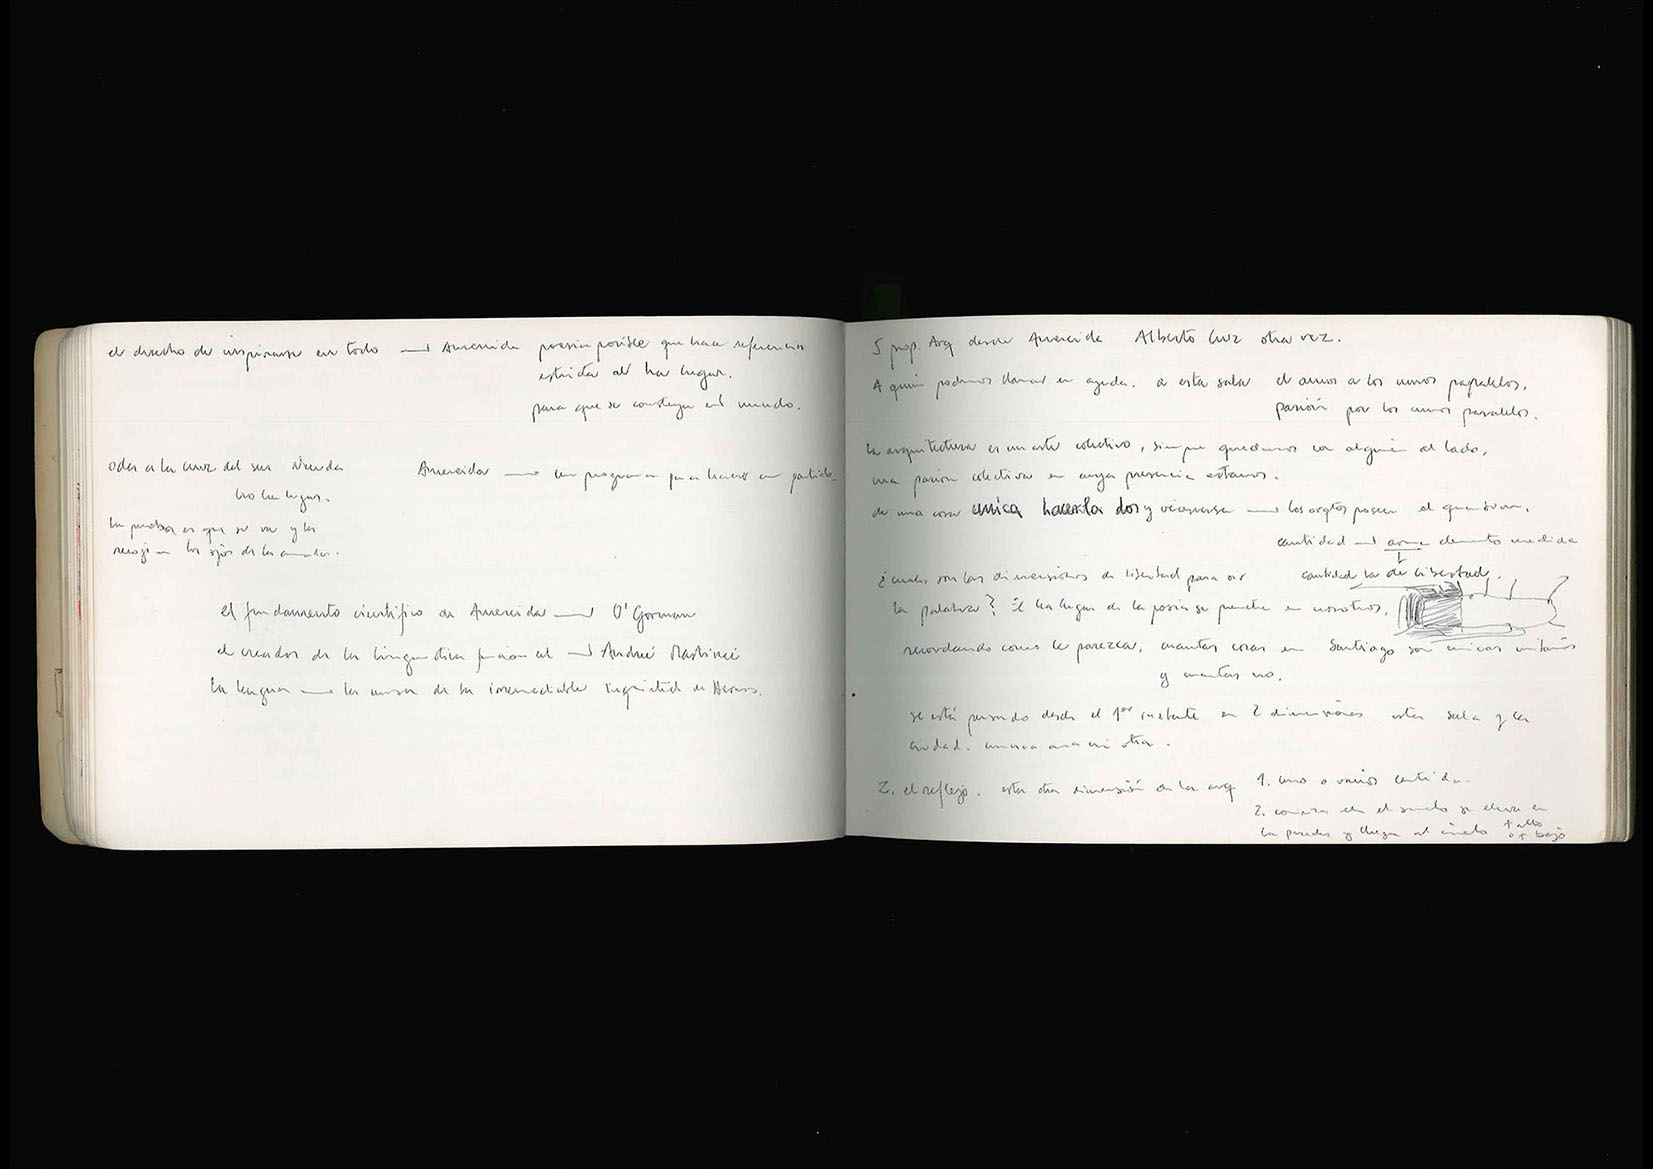 el derecho de inspirarse en todo → Amereida poesía posible que hace referencia
estricta al ha lugar.
para que se construya el mundo.
Oda a la cruz del sur Neruda
no ha lugar.
Amereida → un programa para hacer un partido.
la prueba es que se va y la
recoji en los ojos de la amada.
el fundamento científico de Amereida → O'Gorman
el creador de la linguistica funcional → André Martinet
la lengua → la musa de la irremediable inquietud de
5 prop. Arq desde Amereida Alberto Cruz otra vez.
A quién podemos llamar en ayuda. a esta sala el amor a los muros paralelos,
pasión por los muros paralelos.
la arquitectura es un arte colectivo, siempre quedamos con alguien al lado,
una pasión colectiva en cuya presencia estamos.
de una cosa unica hacerla dos y viceversa → los arqtos poseen el quantum,
cantidad → elemento medida
cantidad de libertad.
¿cuales son las dimensiones de libertad para oir
la palabra? El ha lugar de la poesía se puede en nosotros,
recordando como le parezca, cuantas cosas en Santiago son unicas
y cuantas no.
se está pensando desde el 1er instante en 2 dimensiones esta sala y la
ciudad.
2. el reflejo. esta otra dimensión de la arq 1. uno o varios
2. comienza en el suelo se eleva en
las paredes y llega al cielo + alto
o + bajo